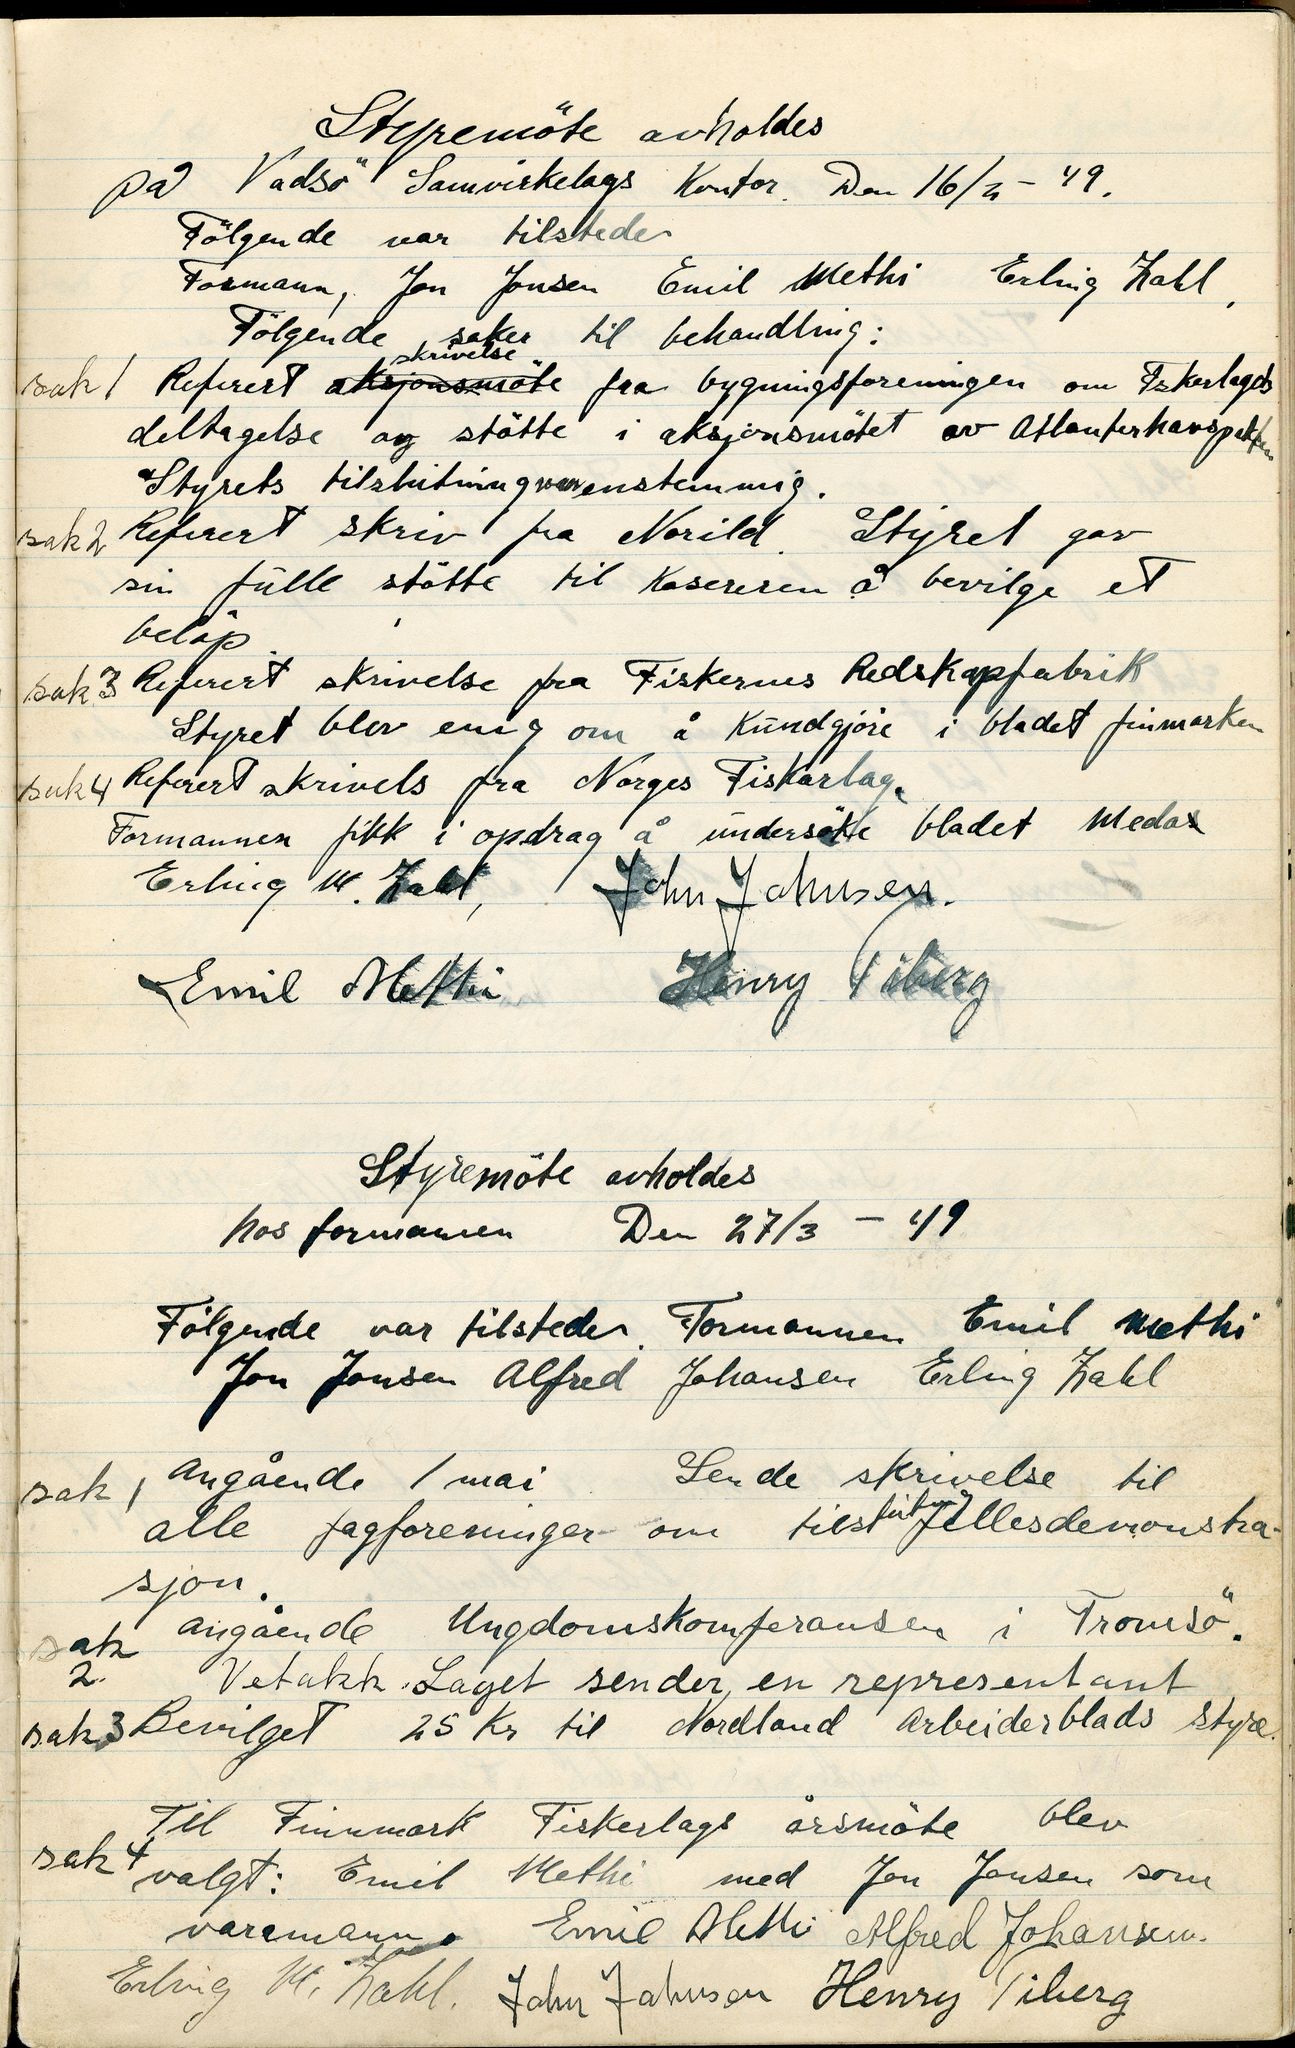 Styremöte avholdes
på Vadsö Samvirkelags Kontor. Den 16/2 - 49.
Fölgende var tilstede
Formann, Jon Jonsen Emil Methi Erling Zahl,
Fölgende saker til behandling:
sak 1 Referert aksjonsmöte skrivelse fra bygningsforeningen om Fskerlagets
deltagelse og stötte i aksjonsmötet av Atlanterhavspakten
Styrets tilslutning var enstemmig.
sak 2 Referert skriv fra Norild. Styret gav
sin fulle stötte til Kasereren å bevilge et
belöp
sak 3 Referert skrivelse fra Fiskernes Redskapfabrik
Styret blev enig om å Kundgjöre i bladet finmarken
sak 4 Referert skrivels fra Norges Fiskarlag.
Formannen fikk i opdrag å undersöke bladet
Erling M. Zahl, John Johnsen.
Emil Methi Henry Siberg
Styremöte avholdes
hos formannen Den 27/3 - 49
Fölgende var tilstede. Formannen Emil Methi
Jon Jonsen Alfred Johansen Erling Zahl
sak 1 Angående 1 mai Sende skrivelse til
alle fagforeninger om tilslutning fellesdemonstra-
sjon.
sak 2. angående Ungdomskonferansen i Tromsö.
Vetakk. Laget sender en representant
sak 3 Bevilget 25 Kr til Nordland Arbeiderblads styre.
Til Finnmark Fiskerlags årsmöte blev
sak 4 valgt: Emil Methi med Jon Jonsen som
varamann. Emil Methi Alfred Johansen.
Erling M. Zahl. John Johnsen Henry Siberg